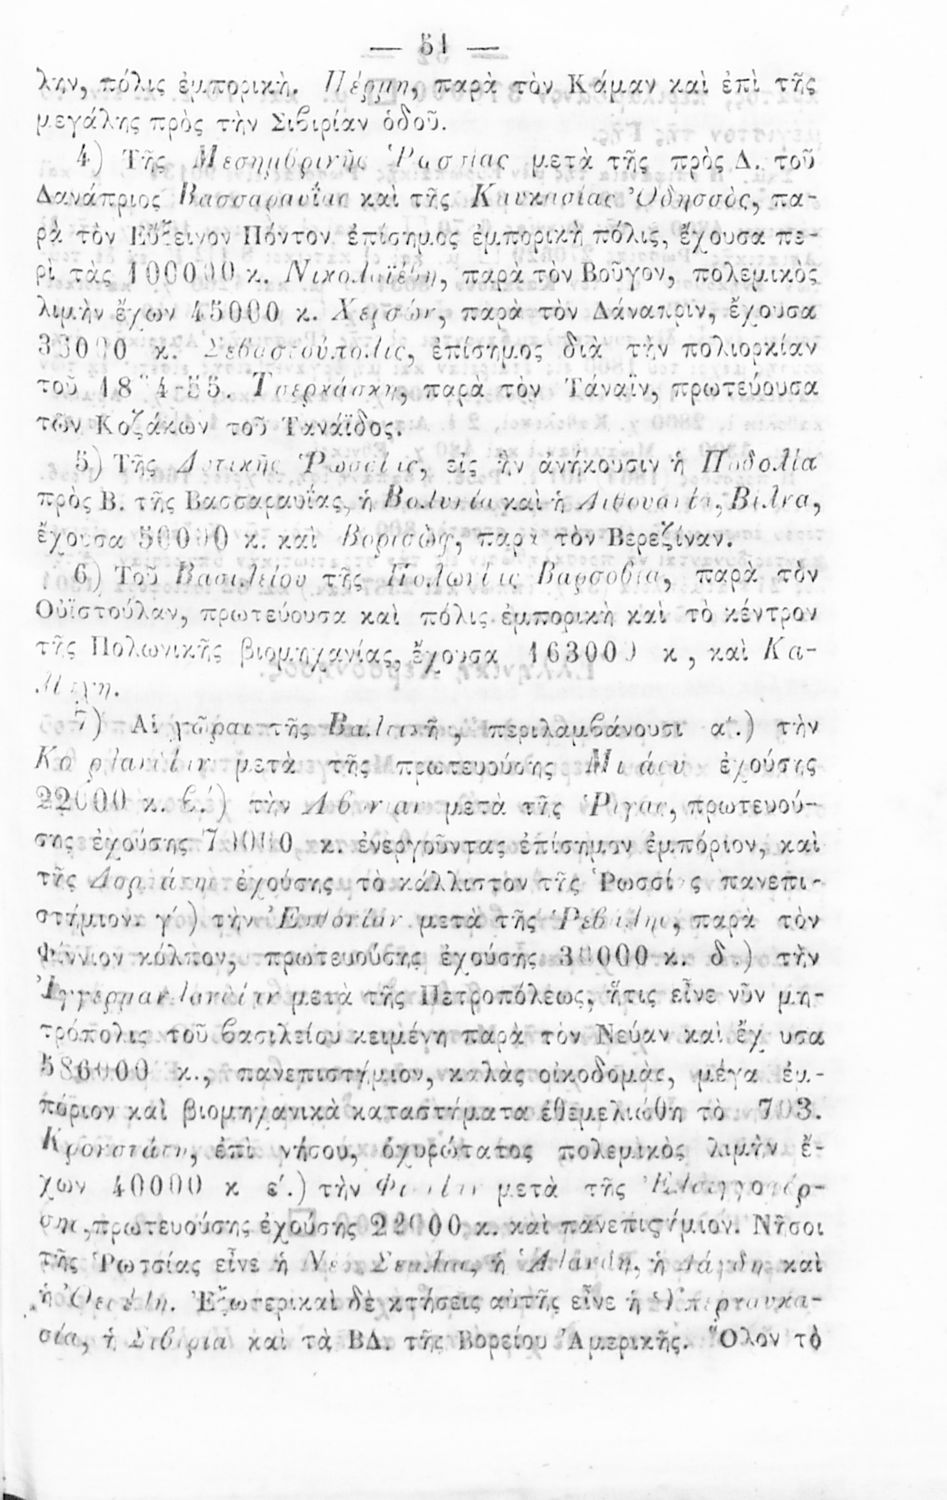 — 51 —
λην, πόλις ἐμπορική. Πέρμη, παρὰ τὸν Κάμαν καὶ ἐπὶ τῆς
μεγάλης πρὸς τὴν Σιβιρίαν ὁδοῦ.
4) Τῆς Μεσημβρινῆς Ῥωσσίας μετὰ τῆς πρὸς Δ. τοῦ
Δανάπριος Βασσαραυΐας καὶ τῆς Καυκασίας Ὀδησσὸς, πα-
ρὰ τὸν Εὔξεινον Πόντον ἐπίσημος ἐμπορικὴ πόλις, ἔχουσα πε-
ρὶ τὰς 100000 κ. Νικολαϊέβη, παρὰ τὸν Βοῦγον, πολεμικὸς
λιμὴν ἔχων 45000 κ. Χερσών, παρὰ τὸν Δάναπριν, ἔχουσα
33000 κ. Σεβαστούπολις, ἐπίσημος διὰ τὴν πολιορκίαν
τοῦ 1854-55. Τσερκάσκη, παρὰ τὸν Τάναϊν, πρωτεύουσα
τῶν Κοζάκων τοῦ Ταναΐδος.
5) Τῆς Δυτικῆς Ῥωσσίας, εἰς ἣν ἀνήκουσιν ἡ Ποδολία
πρὸς Β. τῆς Βασσαραυΐας, ἡ Βολυνία καὶ ἡ Λιθουανία, Βίλνα,
ἔχουσα 50000 κ. καὶ Βορισὼφ, παρὰ τὸν Βερεζίναν.
6) Τοῦ Βασιλείου τῆς Πολωνίας Βαρσοβία, παρὰ τὸν
Οὐϊστούλαν, πρωτεύουσα καὶ πόλις ἐμπορικὴ καὶ τὸ κέντρον
τῆς Πολωνικῆς βιομηχανίας, ἔχουσα 163000 κ, καὶ Κα-
λίχη.
7) Αἱ χῶραι τῆς Βαλτικῆς, περιλαμβάνουσι α΄.) τὴν
Κουρλανδίαν μετὰ τῆς πρωτευούσης Μιτάου ἐχούσης
22000 κ. β΄.) τὴν Λιβονίαν μετὰ τῆς Ῥίγας, πρωτευού-
σης ἐχούσης 70000 κ. ἐνεργοῦντας ἐπίσημον ἐμπόριον, καὶ
τῆς Δορπάτης ἐχούσης τὸ κάλλιστον τῆς Ῥωσσίας πανεπι-
στήμιον. γ΄) τὴν Ἐσθονίαν μετὰ τῆς Ῥεβάλης, παρὰ τὸν
Φίννιον κόλπον, πρωτευούσης ἐχούσης 30000 κ. δ΄.) τὴν
Ἰγγερμανλανδίαν μετὰ τῆς Πετροπόλεως, ἥτις εἶνε νῦν μη-
τρόπολις τοῦ βασιλείου κειμένη παρὰ τὸν Νεύαν καὶ ἔχουσα
586000 κ., πανεπιστήμιον, καλὰς οἰκοδομάς, μέγα ἐμ-
πόριον καὶ βιομηχανικὰ καταστήματα ἐθεμελιώθη τὸ 1703.
Κρονστάτη, ἐπὶ νήσου, ὀχυρώτατος πολεμικὸς λιμὴν ἔ-
χων 40000 κ ε΄.) τὴν μετὰ τῆς Ἑλσιγγοφόρ-
σης, πρωτευούσης ἐχούσης 22000 κ. καὶ πανεπιστήμιον. Νῆσοι
τῆς Ῥωσσίας εἶνε ἡ Νέα Σεμλία, ἡ Ἀλάνδη, ἡ Δάγδη καὶ
ἡ Ὀεσέλη. Ἐξωτερικαὶ δὲ κτήσεις αὐτῆς εἶνε ἡ Ὑπερκαυκα-
σία, ἡ Σιβιρία καὶ τὰ ΒΔ. τῆς Βορείου Ἀμερικῆς. Ὅλον τὸ